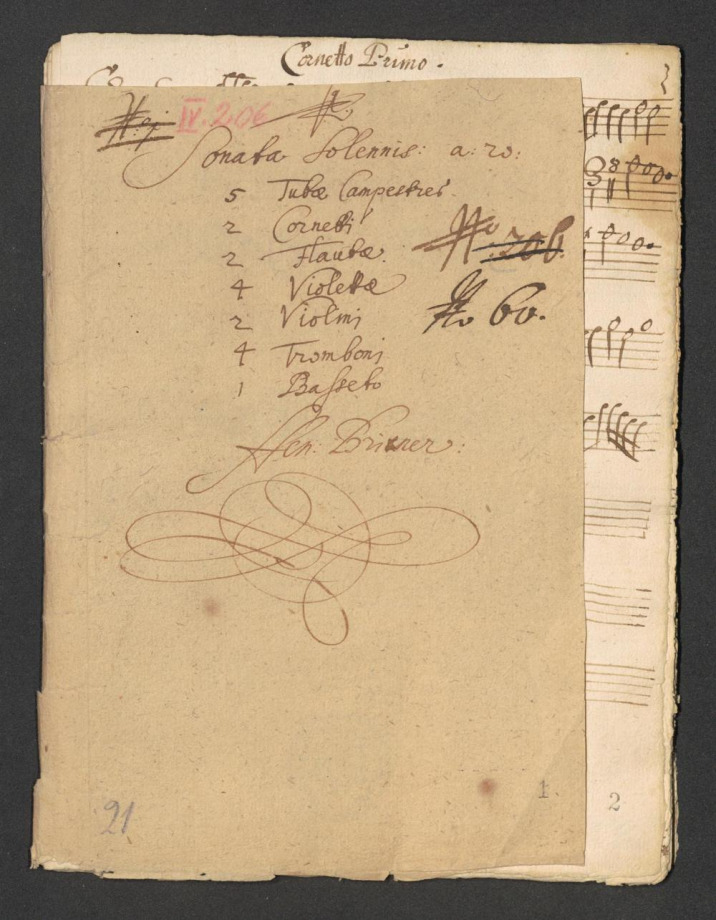 Cornetto Primo.
IV. 206
Sonata Solennis: a: 20:
5 Tubæ Campestres.
2 Cornetti
2 Flautæ.
4 Violettæ
2 Violini
4 Tromboni
1 Basseto
No 206.
No 60.
Hen: Brixner:
21
1.
2